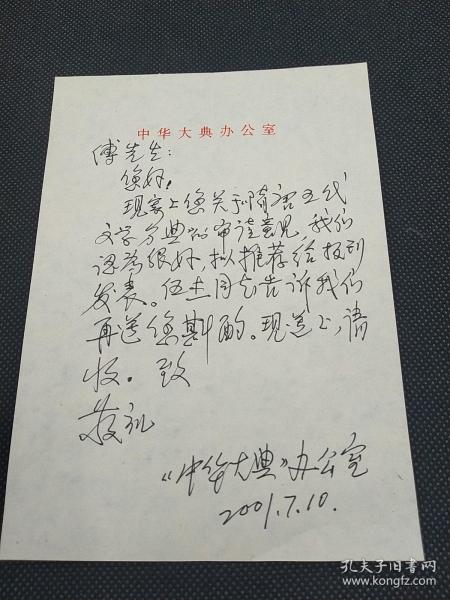 中华大典办公室
傅先生：
您好，
现寄上您关于隋唐五代
文学分典的审读意见，我们
认为很好，拟推荐给报刊
发表。伍杰同志告诉我们
再送您斟酌。现送上，请
收。致
敬礼
《中华大典》办公室
2001.7.10.
孔夫子旧书网
www.kongfz.com